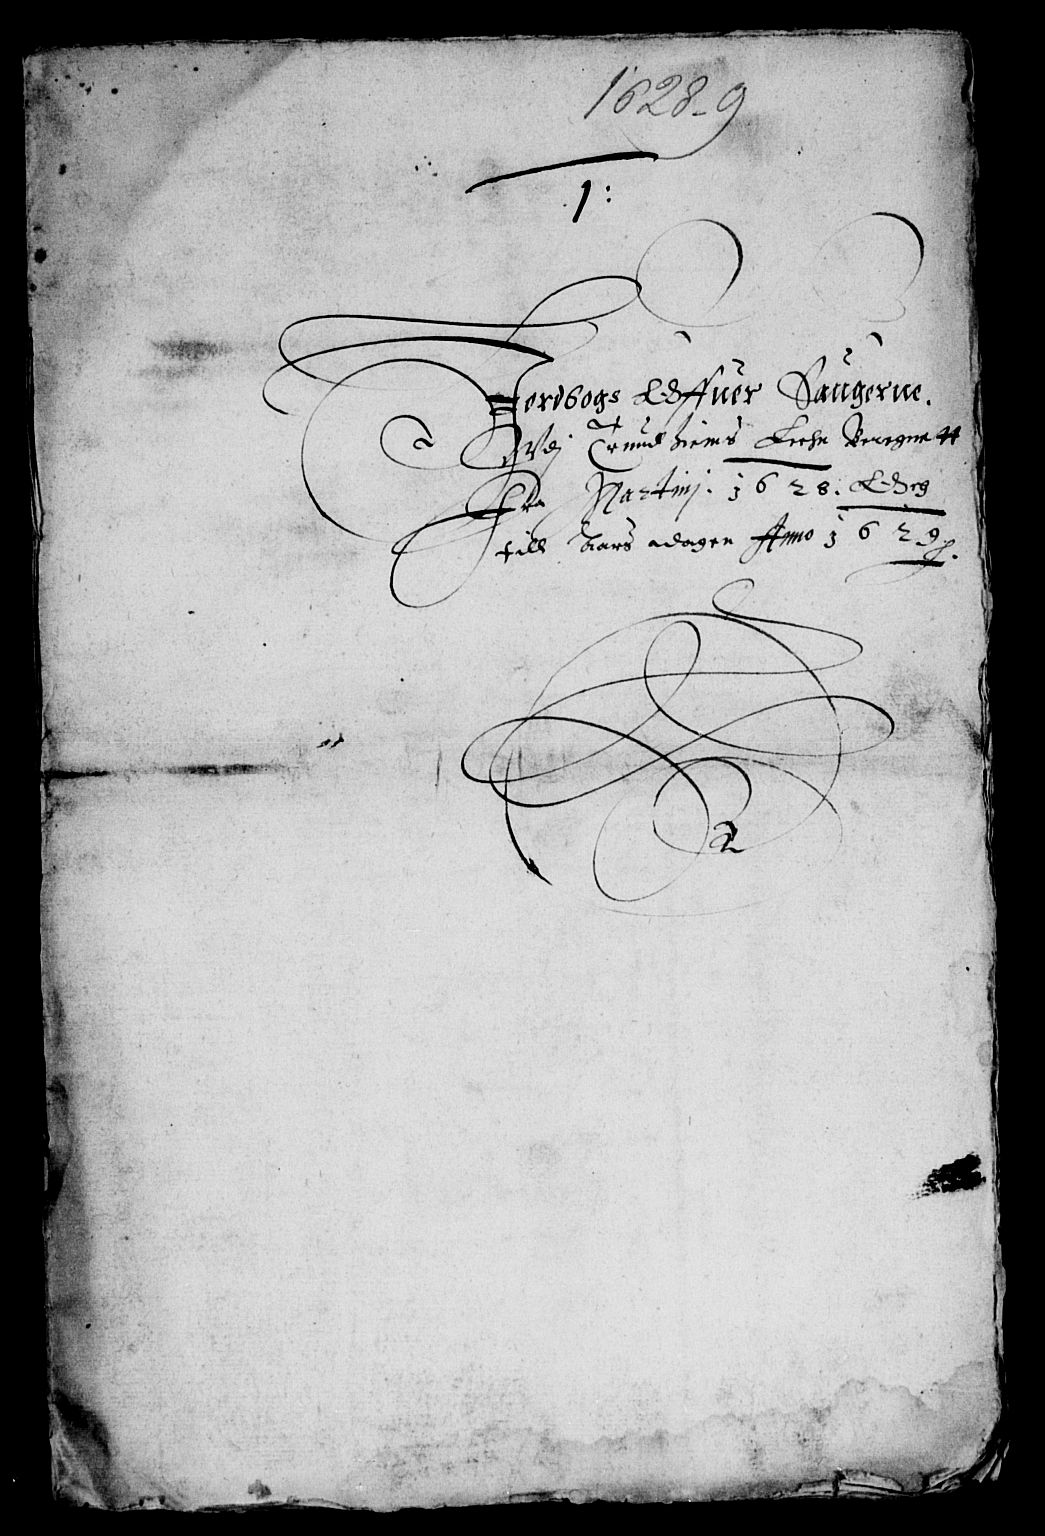 1628-9
1:
Jordbogs Offuer Saugerne.
Vdj Trundhiems Lehn Beregnett
Fra Martinj. 1628. Och
till Aars dagen Anno 1629